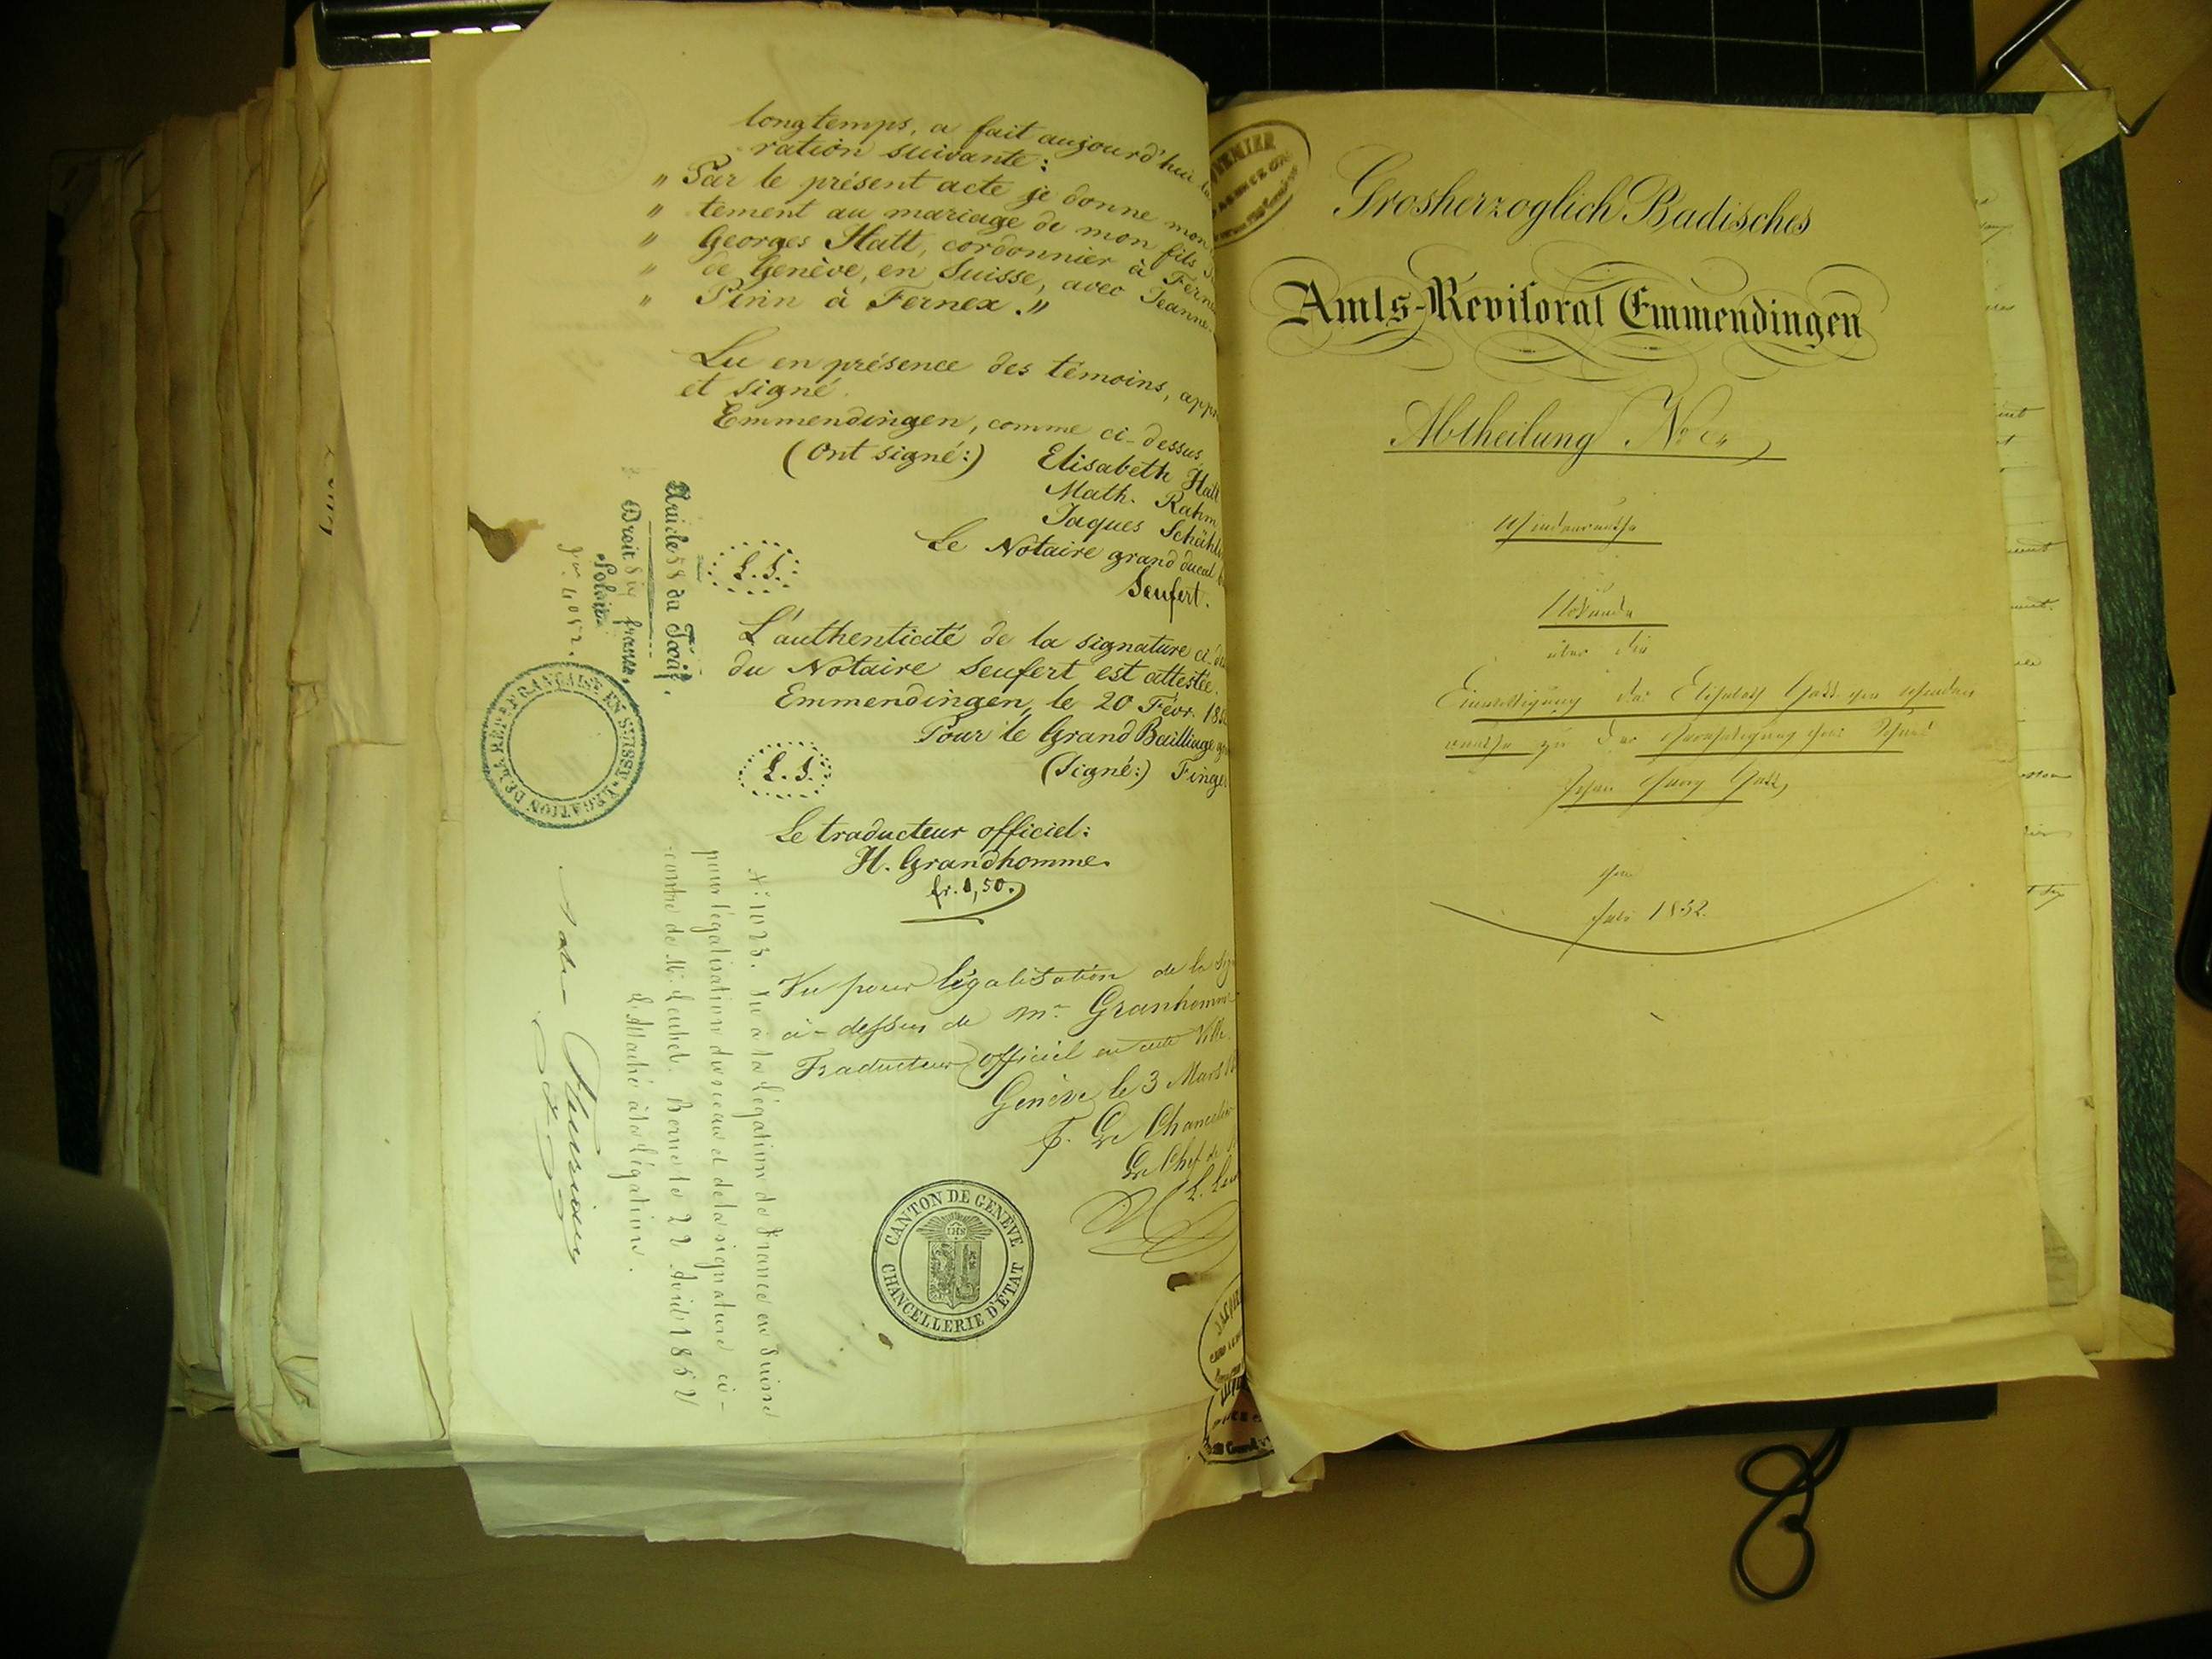 longtemps, a fait aujourd'hui la
ration suivante:
" Par le présent acte je donne mon
" tement au mariage de mon fils
" Georges Hatt, cordonnier à Ferne
" de Genève, en Suisse, avec Jeanne
" Perin à Fernex. "
Lu en présence des témoins, appr
et signé.
Emmendingen, comme ci-dessus
(Ont signé:) Elisabeth Hatt
Math. Rahm
Jaques Schähl
Le Notaire grand ducal
Seufert.
L. S.
L'authenticité de la signature ci-de
du Notaire Seufert est attestée.
Emmendingen, le 20 Févr. 185
Pour le Grand Bailliage
L. S.
(Signé:) Finge
Le traducteur officiel:
H. Grandhomme.
fr. 1,50.
Vu pour légalisation de la sig
ci-dessus de Mr. Granhomme
Traducteur officiel en cette Ville.
Genève le 3 Mars 18
P. Le Chancelier
Le Chef de
L.
CANTON DE GENÈVE
IHS
CHANCELLERIE D'ÉTAT
Article 58 du Tarif.
Droit francs.
No. 4052.
LÉGATION DE LA RÉP. FRANÇAISE EN SUISSE
No. 1023. Vu à la Légation de France en Suisse
pour légalisation du sceau et de la signature ci-
-contre de M. Leuhel. Berne le 22 Avril 1852
L'Attaché à la Légation.
Grosherzoglich Badisches
Amts-Revisorat Emmendingen
Abtheilung No
Windenreuthe
Urkunde
über die
Einwilligung der Elisabeth Hatt von Winden
reuthe zu der Verehelichung ihres Sohnes
Johann Georg Hatt,
1852.